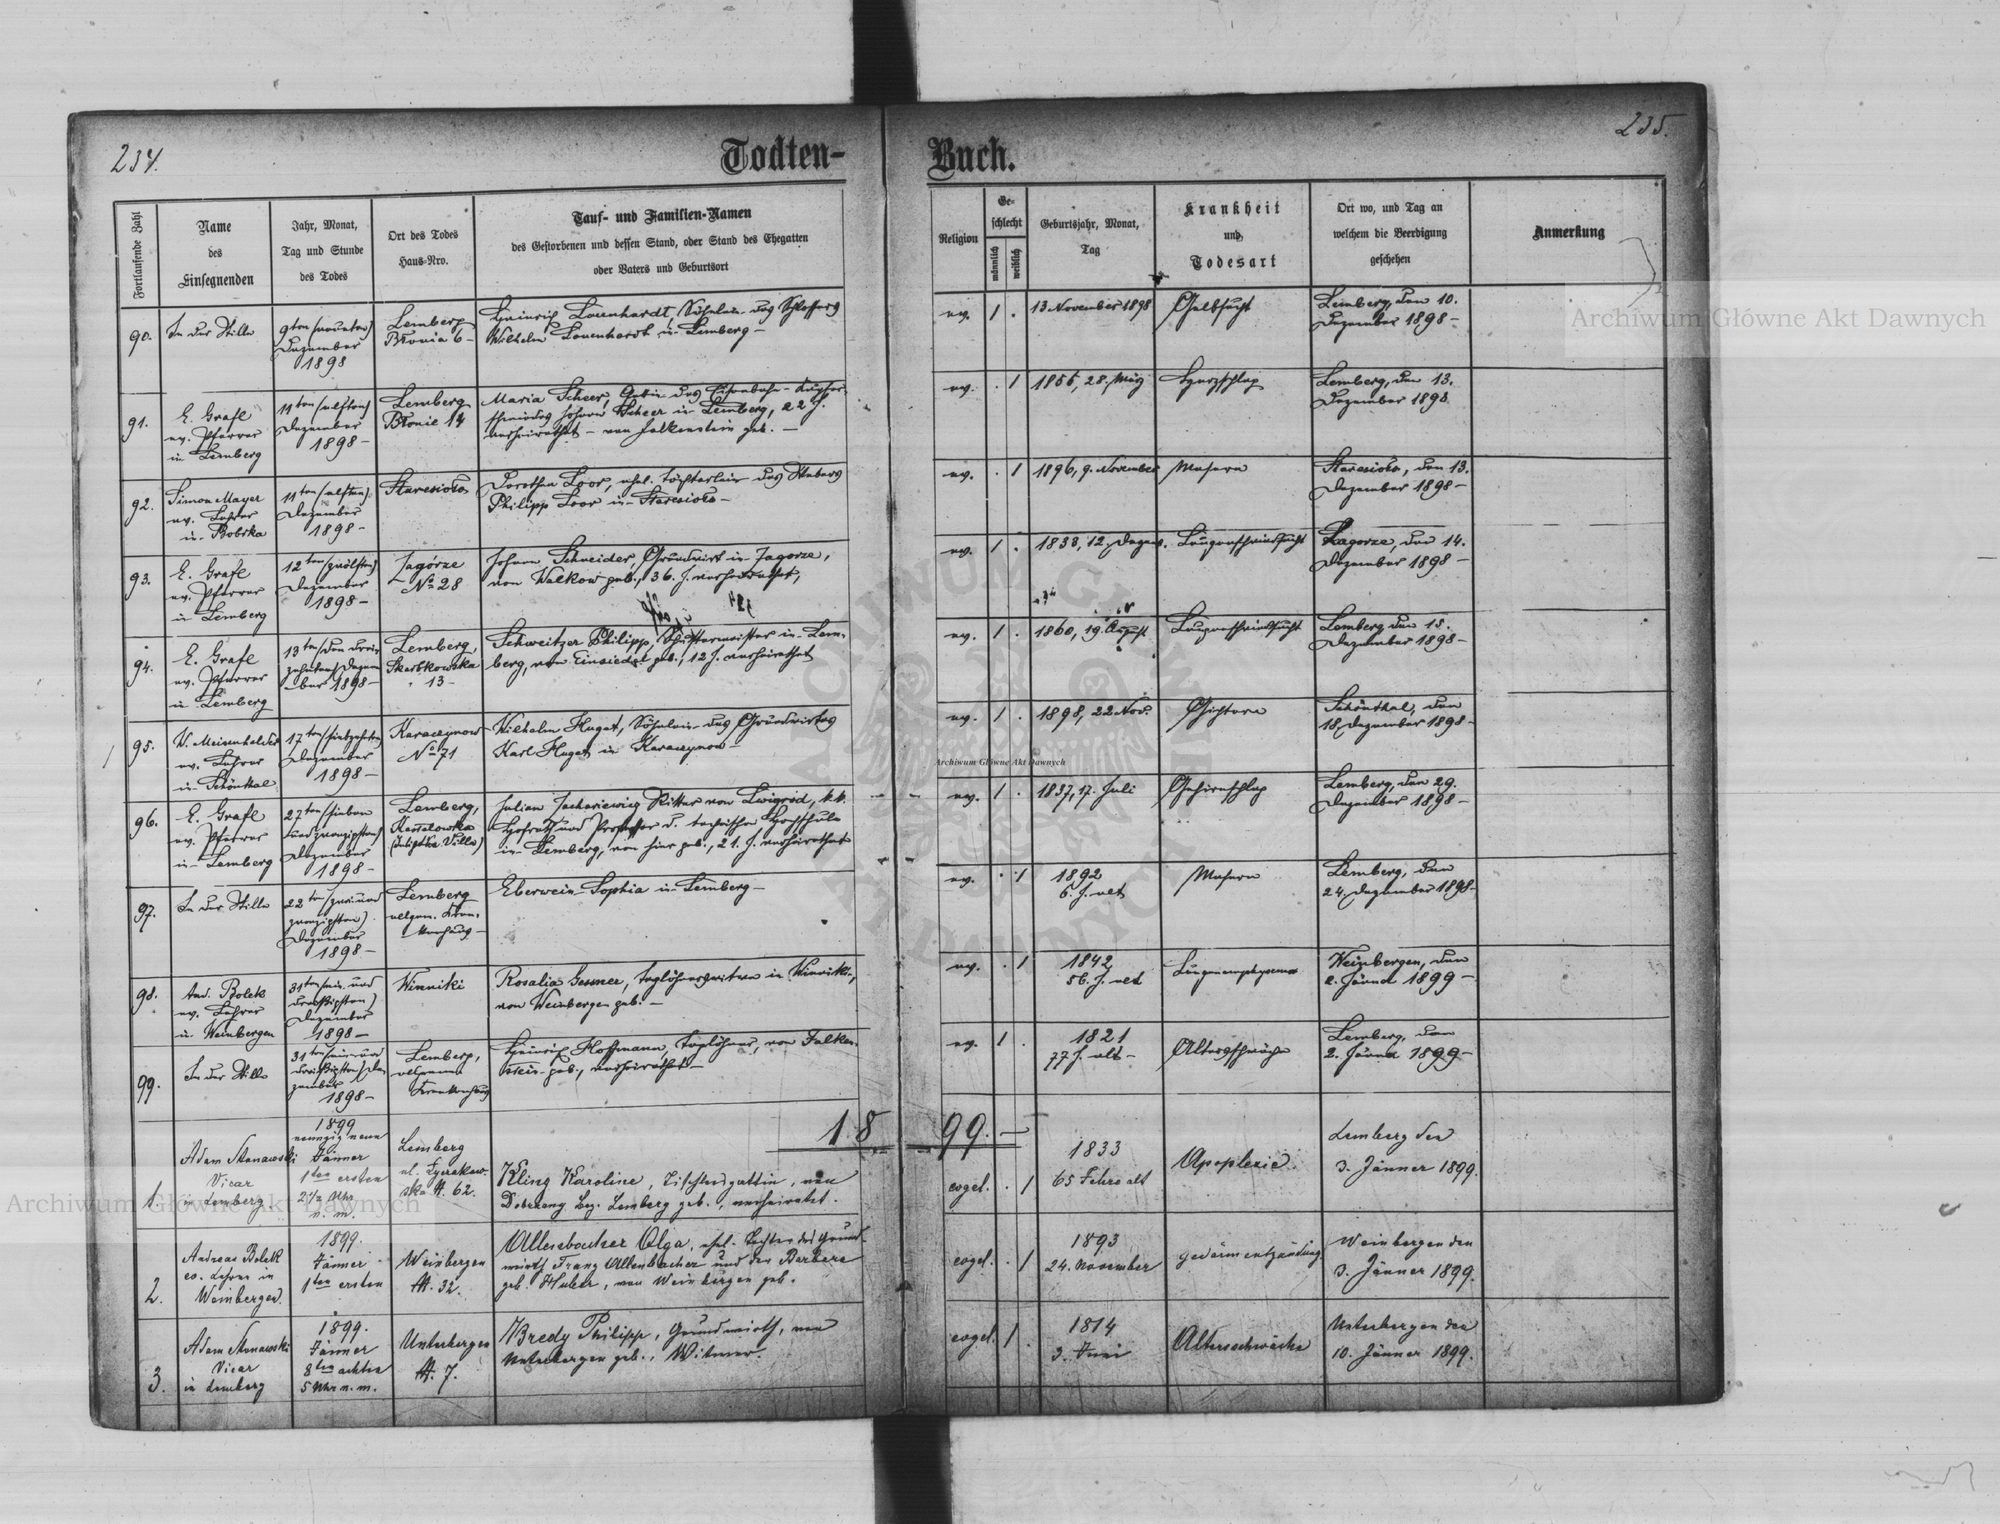 234.
Todten-
Buch.
235.
Fortlaufende Zahl
Name
des
Einsegnenden
Jahr, Monat,
Tag und Stunde
des Todes
Ort des Todes
Haus-Nro.
Tauf- und Familien-Namen
des Gestorbenen und dessen Stand, oder Stand des Ehegatten
oder Vaters und Geburtsort
Religion
Ge-
schlecht
männlich
weiblich
Geburtsjahr, Monat,
Tag
Krankheit
und
Todesart
Ort wo, und Tag an
welchem die Beerdigung
geschehen
Anmerkung
90.
In der Stille
9ten (neunten)
Dezember
1898
Lemberg
Błonia 6 -
Heinrich Lauenhardt, Söhnlein des Schlossers
Wilhelm Lauenhardt in Lemberg -
ev.
1 .
13 November 1898
Gelbsucht
Lemberg, den 10.
Dezember 1898 -
91.
E. Grafl
ev. Pfarrer
in Lemberg
11ten (elften)
Dezember
1898 -
Lemberg
Błonie 14
Maria Scheer, Gattin des Eisenbahn-
Johann Scheer in Lemberg, 22 J.
verheirathet - von Falkenstein geb. -
ev.
. 1
28. März
Herzschlag
Lemberg, den 13.
Dezember 1898
92.
Simon Mayer
ev. Lehrer
in Bobrka
11ten (elften)
Dezember
1898 -
Staresioło
Dorothea Loor, ehel. Töchterlein des Webers
Philipp Loor in Staresioło -
ev.
. 1
1896, 9. November
Masern
Staresioło, den 13.
Dezember 1898 -
93.
E. Grafl
ev. Pfarrer
in Lemberg
12ten (zwölften)
Dezember
1898 -
Zagórze
No 28
Johann Schneider, Grundwirt in Zagorze,
von Walkow geb., 36. J. verheirathet,
ev.
1 .
1838, 12. Dezem.
Lungenschwindsucht
Zagorze, den 14.
Dezember 1898 -
94.
E. Grafl
ev. Pfarrer
in Lemberg
13ten (den drei-
zehnten) Dezem-
ber 1898 -
Lemberg,
Skarbkowska
13 -
Schweitzer Philipp, Schustermeister in Lem-
berg, von Einsiedel geb., 12 J. verheirathet
ev.
1 .
1860, 19. August
Lungenschwindsucht
Lemberg den 15.
Dezember 1898 -
95.
W. Meisenhelder
ev. Lehrer
in Schönthal
17ten (siebzehnten)
Dezember
1898 -
Karaczynow
No 71
Wilhelm Hugat, Söhnlein des Grundwirtes
Karl Hugat in Karaczynow -
ev.
1 .
1898, 22 Nov.
Gichtern
Schönthal, den
18. Dezember 1898 -
96.
E. Grafl
ev. Pfarrer
in Lemberg
27ten (sieben
und zwanzigsten)
Dezember
1898 -
Lemberg,
Julian Zachariewicz Ritter von Lwigród, k.k.
Hofrath und Professor d. technischen Hochschule
in Lemberg, von hier geb., 21. J. verheirathet
ev.
1 .
1837, 17. Juli
Gehirnschlag
Lemberg, den 29.
Dezember 1898 -
97.
In der Stille
22ten (zwei und
zwanzigsten)
Dezember
1898 -
Lemberg
allgem. Kran-
kenhaus -
Eberwein Sophia in Lemberg -
ev.
. 1
1892
6. J. alt
Masern
Lemberg, den
24. Dezember 1898 -
98.
And. Bolek
ev. Lehrer
in Weinbergen
31ten (ein und
dreißigsten)
Dezember
1898 -
Winniki
Rosalia Gessner, Taglöhnerswitwe in Winniki,
von Weinbergen geb. -
ev.
. 1
1842
56. J. alt
Lungenemphysema
Weinbergen, den
2. Jänner 1899 -
99.
In der Stille
31ten (ein und
dreißigsten) De-
zember
1898 -
Lemberg,
allgemeines
Krankenhaus
Heinrich Hoffmann, Taglöhner, von Falken-
stein geb., verheirathet -
ev.
1 .
1821
77 J. alt -
Altersschwäche
Lemberg, den
2. Jänner 1899 -
18
99. -
1.
Adam Stonawski
Vicar
in Lemberg
1899
neunzig neun
Jänner
1ten ersten
2½ Uhr
n. m.
Lemberg
ul. Łyczakow-
ska N. 62.
Kling Karoline, Tischlersgattin, von
Dobrzany Bez. Lemberg geb., verheiratet.
evgel.
. 1
1833
65 Jahre alt
Apoplexie.
Lemberg den
3. Jänner 1899.
2.
Andreas Bolek
ev. Lehrer in
Weinbergen.
1899.
Jänner
1ten ersten
Weinbergen
N. 32.
Allenbacher Olga, ehel. Tochter des Grund-
wirth Franz Allenbacher und der Barbara
geb. Huber, von Weinbergen geb.
evgel.
. 1
1893
24. November
Gedärmentzündung
Weinbergen den
3. Jänner 1899.
3.
Adam Stonawski
Vicar
in Lemberg
1899.
Jänner
8ten achten
5 Uhr n. m.
Unterbergen
N. 7.
Bredy Philipp, Grundwirth, von
Unterbergen geb., Witwer.
evgel.
1 .
1814
3. Juni
Altersschwäche
Unterbergen den
10. Jänner 1899.
Archiwum Główne Akt Dawnych
Archiwum Główne Akt Dawnych
Archiwum Główne Akt Dawnych